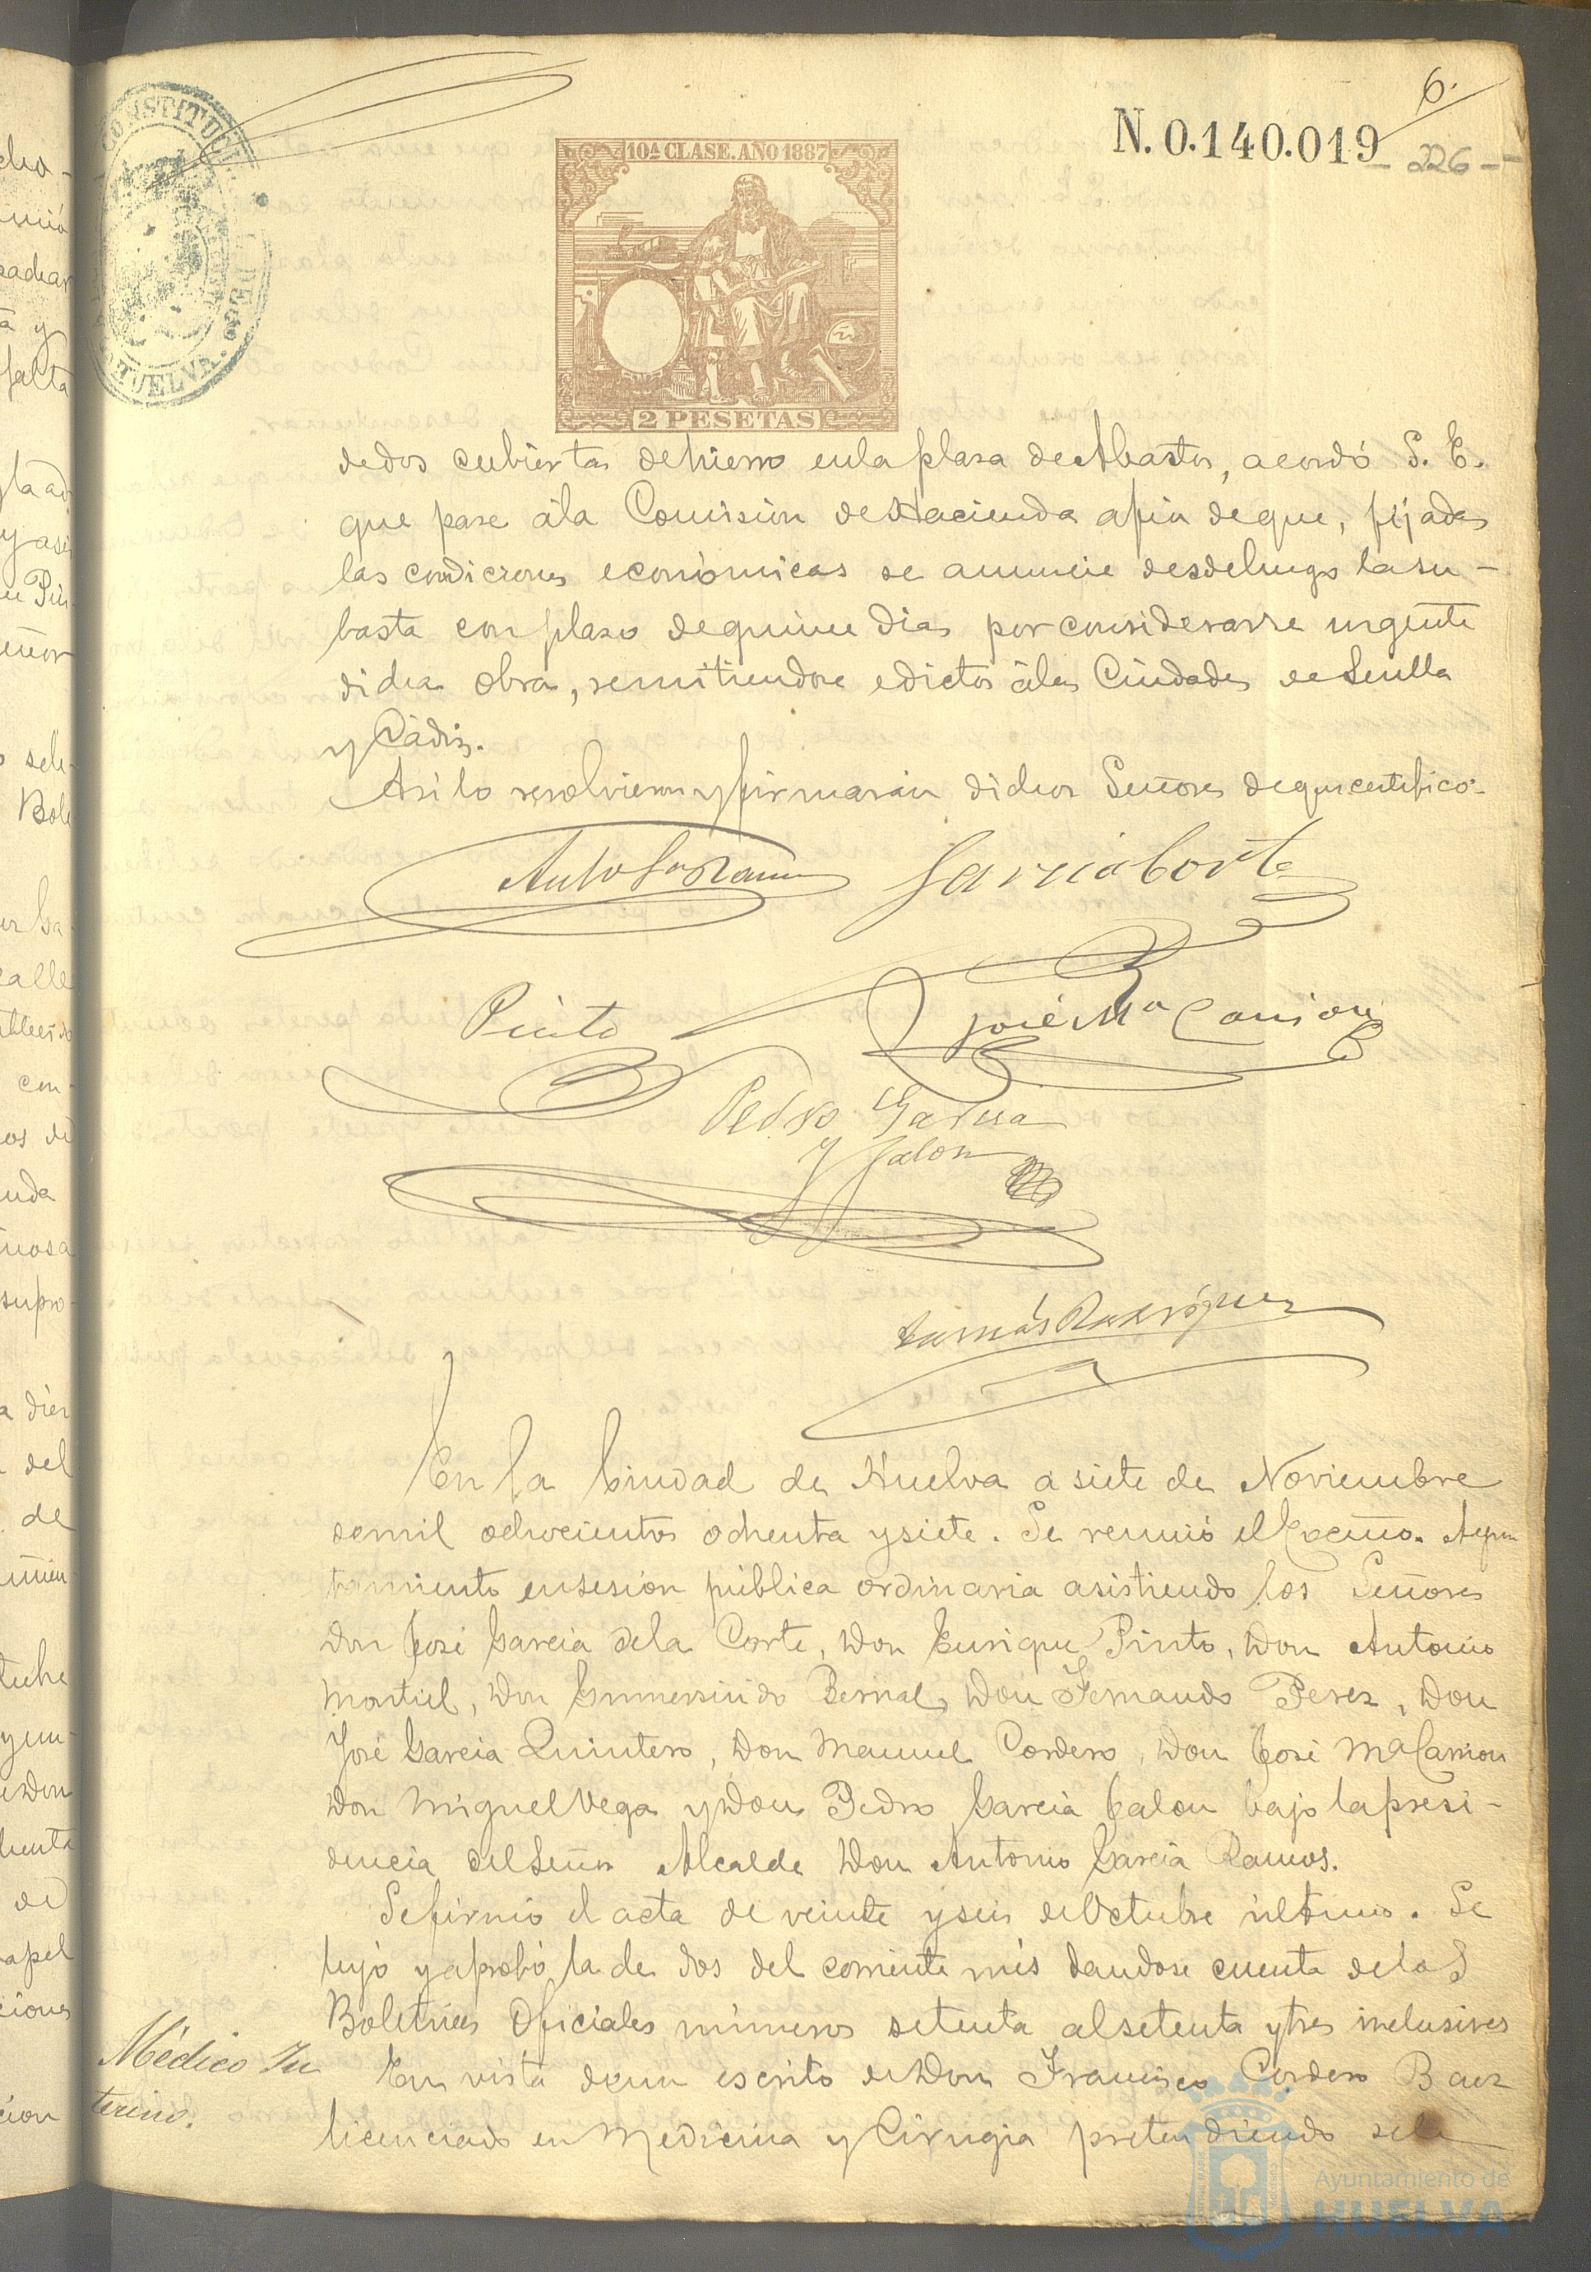 6.
N. 0.140.019
- 226 -
CONSTITUCI
DE
HUELVA.
10ª CLASE. AÑO 1887
2 PESETAS
de dos cubiertas de hierro en la plaza de Abastos, acordó S. E.
que pase á la Comision de Hacienda a fin de que, fijadas
las condiciones económicas se anuncie desde luego la su-
basta con plazo de quince dias por considerarse urgente
dicha obra, remitiendose edictos á las Ciudades de Sevilla
y Cádiz.
Asi lo resolvieron y firmarán dichos Señores de que certifico.
Antº Gª Ramos
Garcia Corte
Pinto
José Mª Carrion
Pedro Garcia
y Jalon
Tomás Rodríguez
En la Ciudad de Huelva a siete de Noviembre
de mil ochocientos ochenta y siete. Se reunió el Excmo. Ayun
tamiento en sesion pública ordinaria asistiendo los Señores
Don José Garcia de la Corte, Don Enrique Pinto, Don Antonio
Montiel, Don Gumersindo Bernal, Don Fernando Perez, Don
José Garcia Quintero, Don Manuel Cordero, Don José Mª Carrion
Don Miguel Vega y Don Pedro Garcia Jalon bajo la presi-
dencia del Señor Alcalde Don Antonio Garcia Ramos.
Se firmó el acta de veinte y seis de Octubre último. Se
leyó y aprobó la de dos del corriente mes dandose cuenta de los
Boletines Oficiales números setenta al setenta y tres inclusives
Médico In
terino.
En vista de un escrito de Don Francisco Cordero Baez
licenciado en Medicina y Cirugia pretendiendo se le
Ayuntamiento de
HUELVA